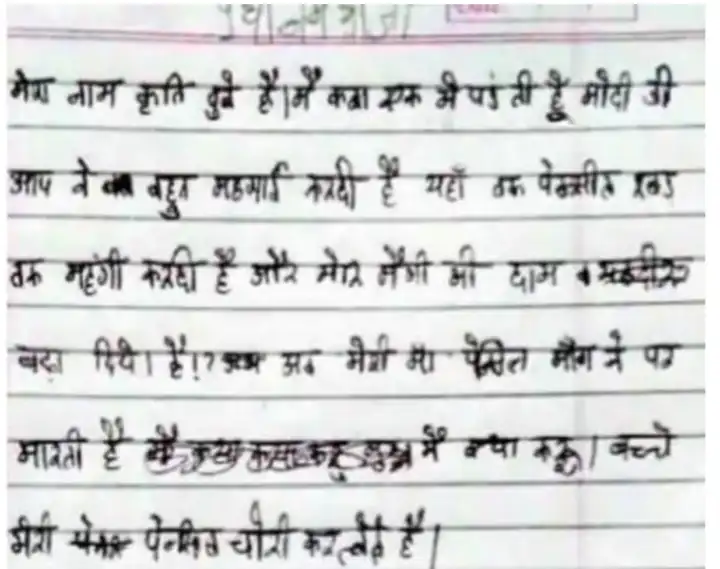 प्रधानमंत्री जी
मेरा नाम कृति दुबे है। मै कक्षा एक मे पढ़ ती हूँ मोदी जी
आप ने बहुत महगाई करदी है यहाँ तक पेनसील रबड
तक महंगी करदी है और मेरि मैगी की दाम
बढ़ा दिये। है!? अब मेरी माँ पेंसिल माँग ने पर
मारती है मै क्या करू। बच्चे
मेरी पेन्सिल चोरी कर लेते है।